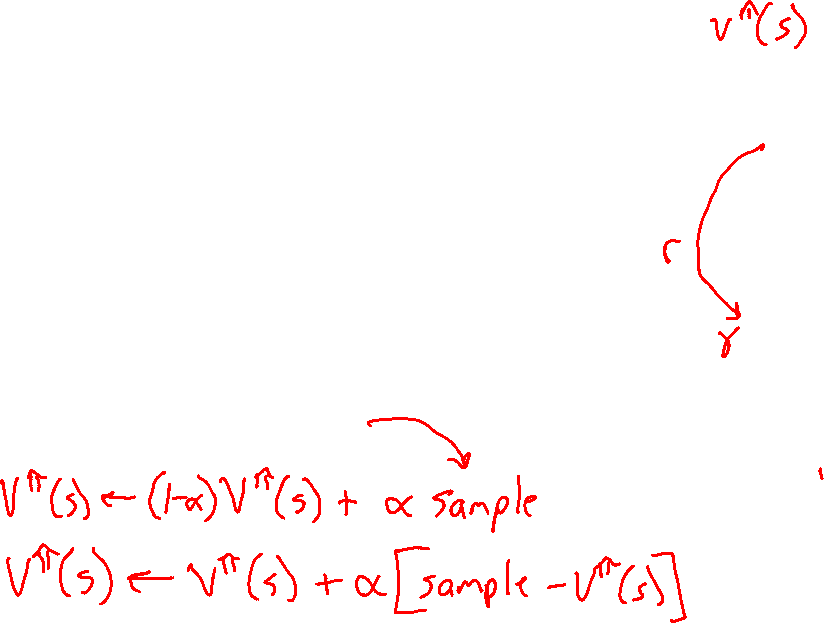 V^π(s)
r
γ
V^π(s) ← (1-α)V^π(s) + α sample
V^π(s) ← V^π(s) + α[sample - V^π(s)]